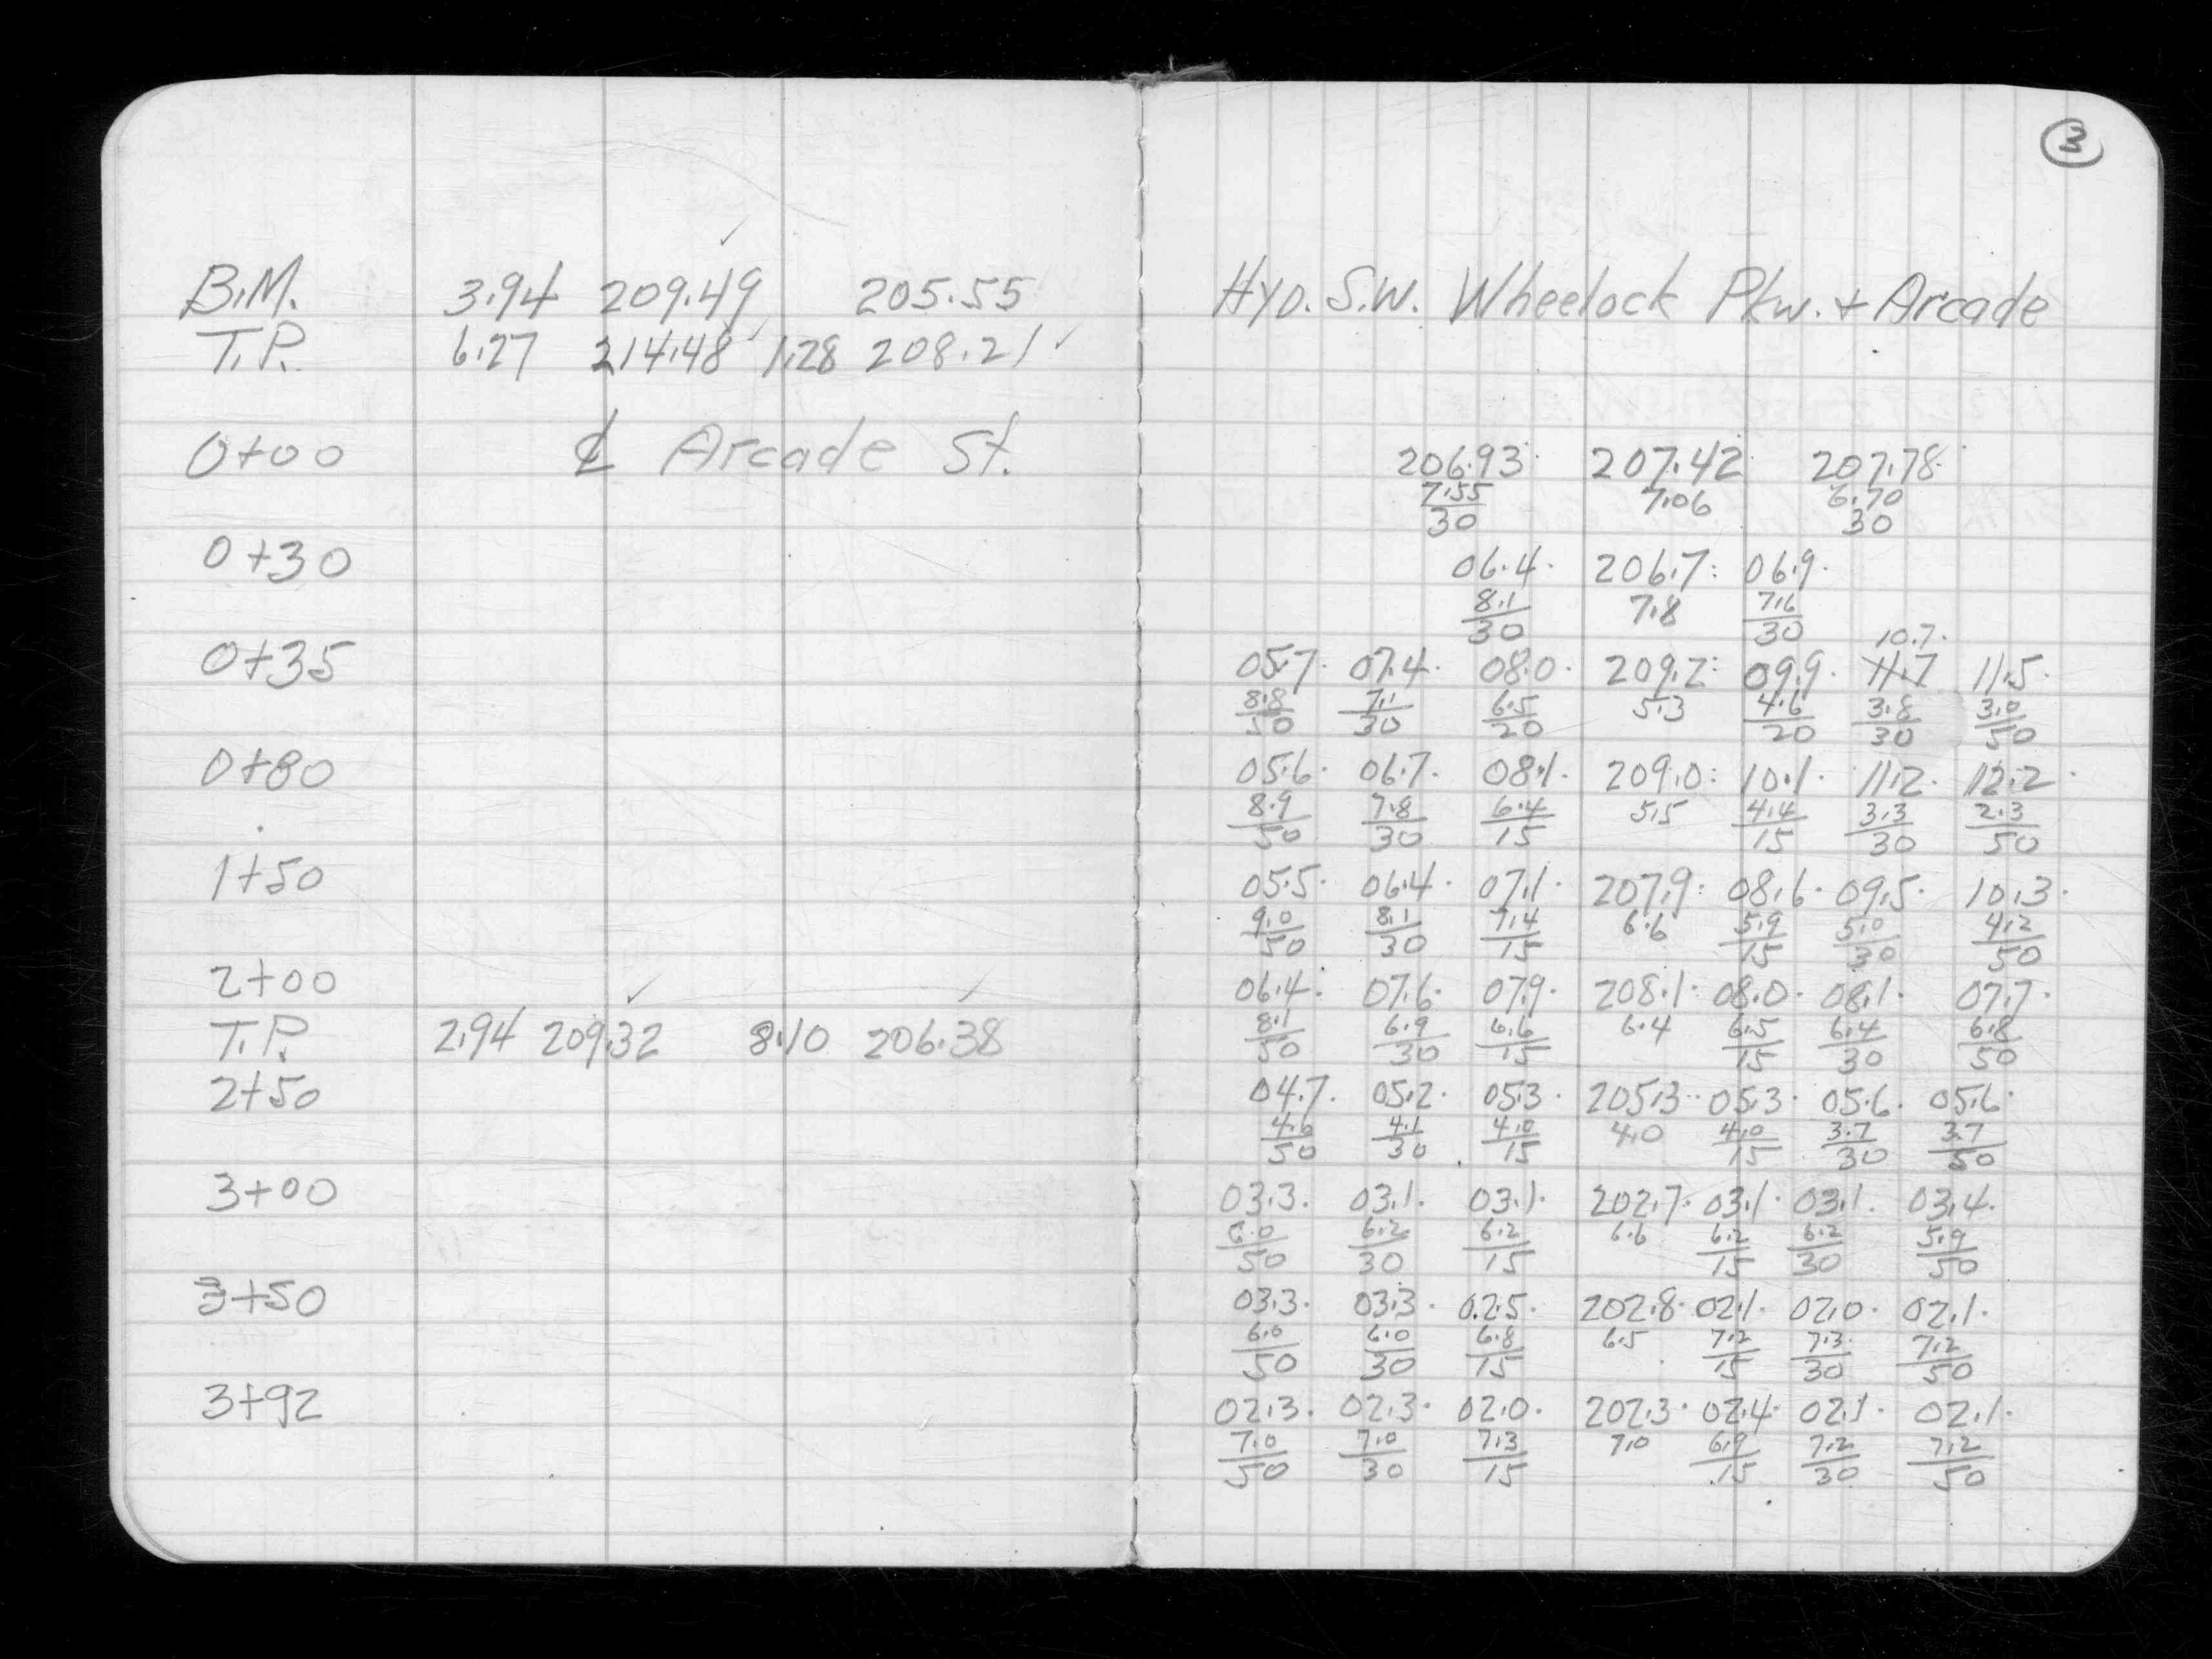 3
B.M. 3.94 209.49 205.55 Hyd. S.W. Wheelock Pkw. + Arcade
T.P. 6.27 214.48 1.28 208.21
0+00 ℄ Arcade St. 206.93 207.42 207.78
7.55 7.06 6.70
30 30
0+30 06.4 206.7 06.9
8.1 7.8 7.6
30 30
10.7
0+35 05.7 07.4 08.0 209.2 09.9 11.7 11.5
8.8 7.1 6.5 5.3 4.6 3.8 3.0
50 30 20 20 30 50
0+80 05.6 06.7 08.1 209.0 10.1 11.2 12.2
8.9 7.8 6.4 5.5 4.4 3.3 2.3
50 30 15 15 30 50
1+50 05.5 06.4 07.1 207.9 08.6 09.5 10.3
9.0 8.1 7.4 6.6 5.9 5.0 4.2
50 30 15 15 30 50
2+00 06.4 07.6 07.9 208.1 08.0 08.1 07.7
T.P. 2.94 209.32 8.10 206.38 8.1 6.9 6.6 6.4 6.5 6.4 6.8
50 30 15 15 30 50
2+50 04.7 05.2 05.3 205.3 05.3 05.6 05.6
4.6 4.1 4.0 4.0 4.0 3.7 3.7
50 30 15 15 30 50
3+00 03.3 03.1 03.1 202.7 03.1 03.1 03.4
6.0 6.2 6.2 6.6 6.2 6.2 5.9
50 30 15 15 30 50
3+50 03.3 03.3 02.5 202.8 02.1 02.0 02.1
6.0 6.0 6.8 6.5 7.2 7.3 7.2
50 30 15 15 30 50
3+92 02.3 02.3 02.0 202.3 02.4 02.1 02.1
7.0 7.0 7.3 7.0 6.9 7.2 7.2
50 30 15 15 30 50